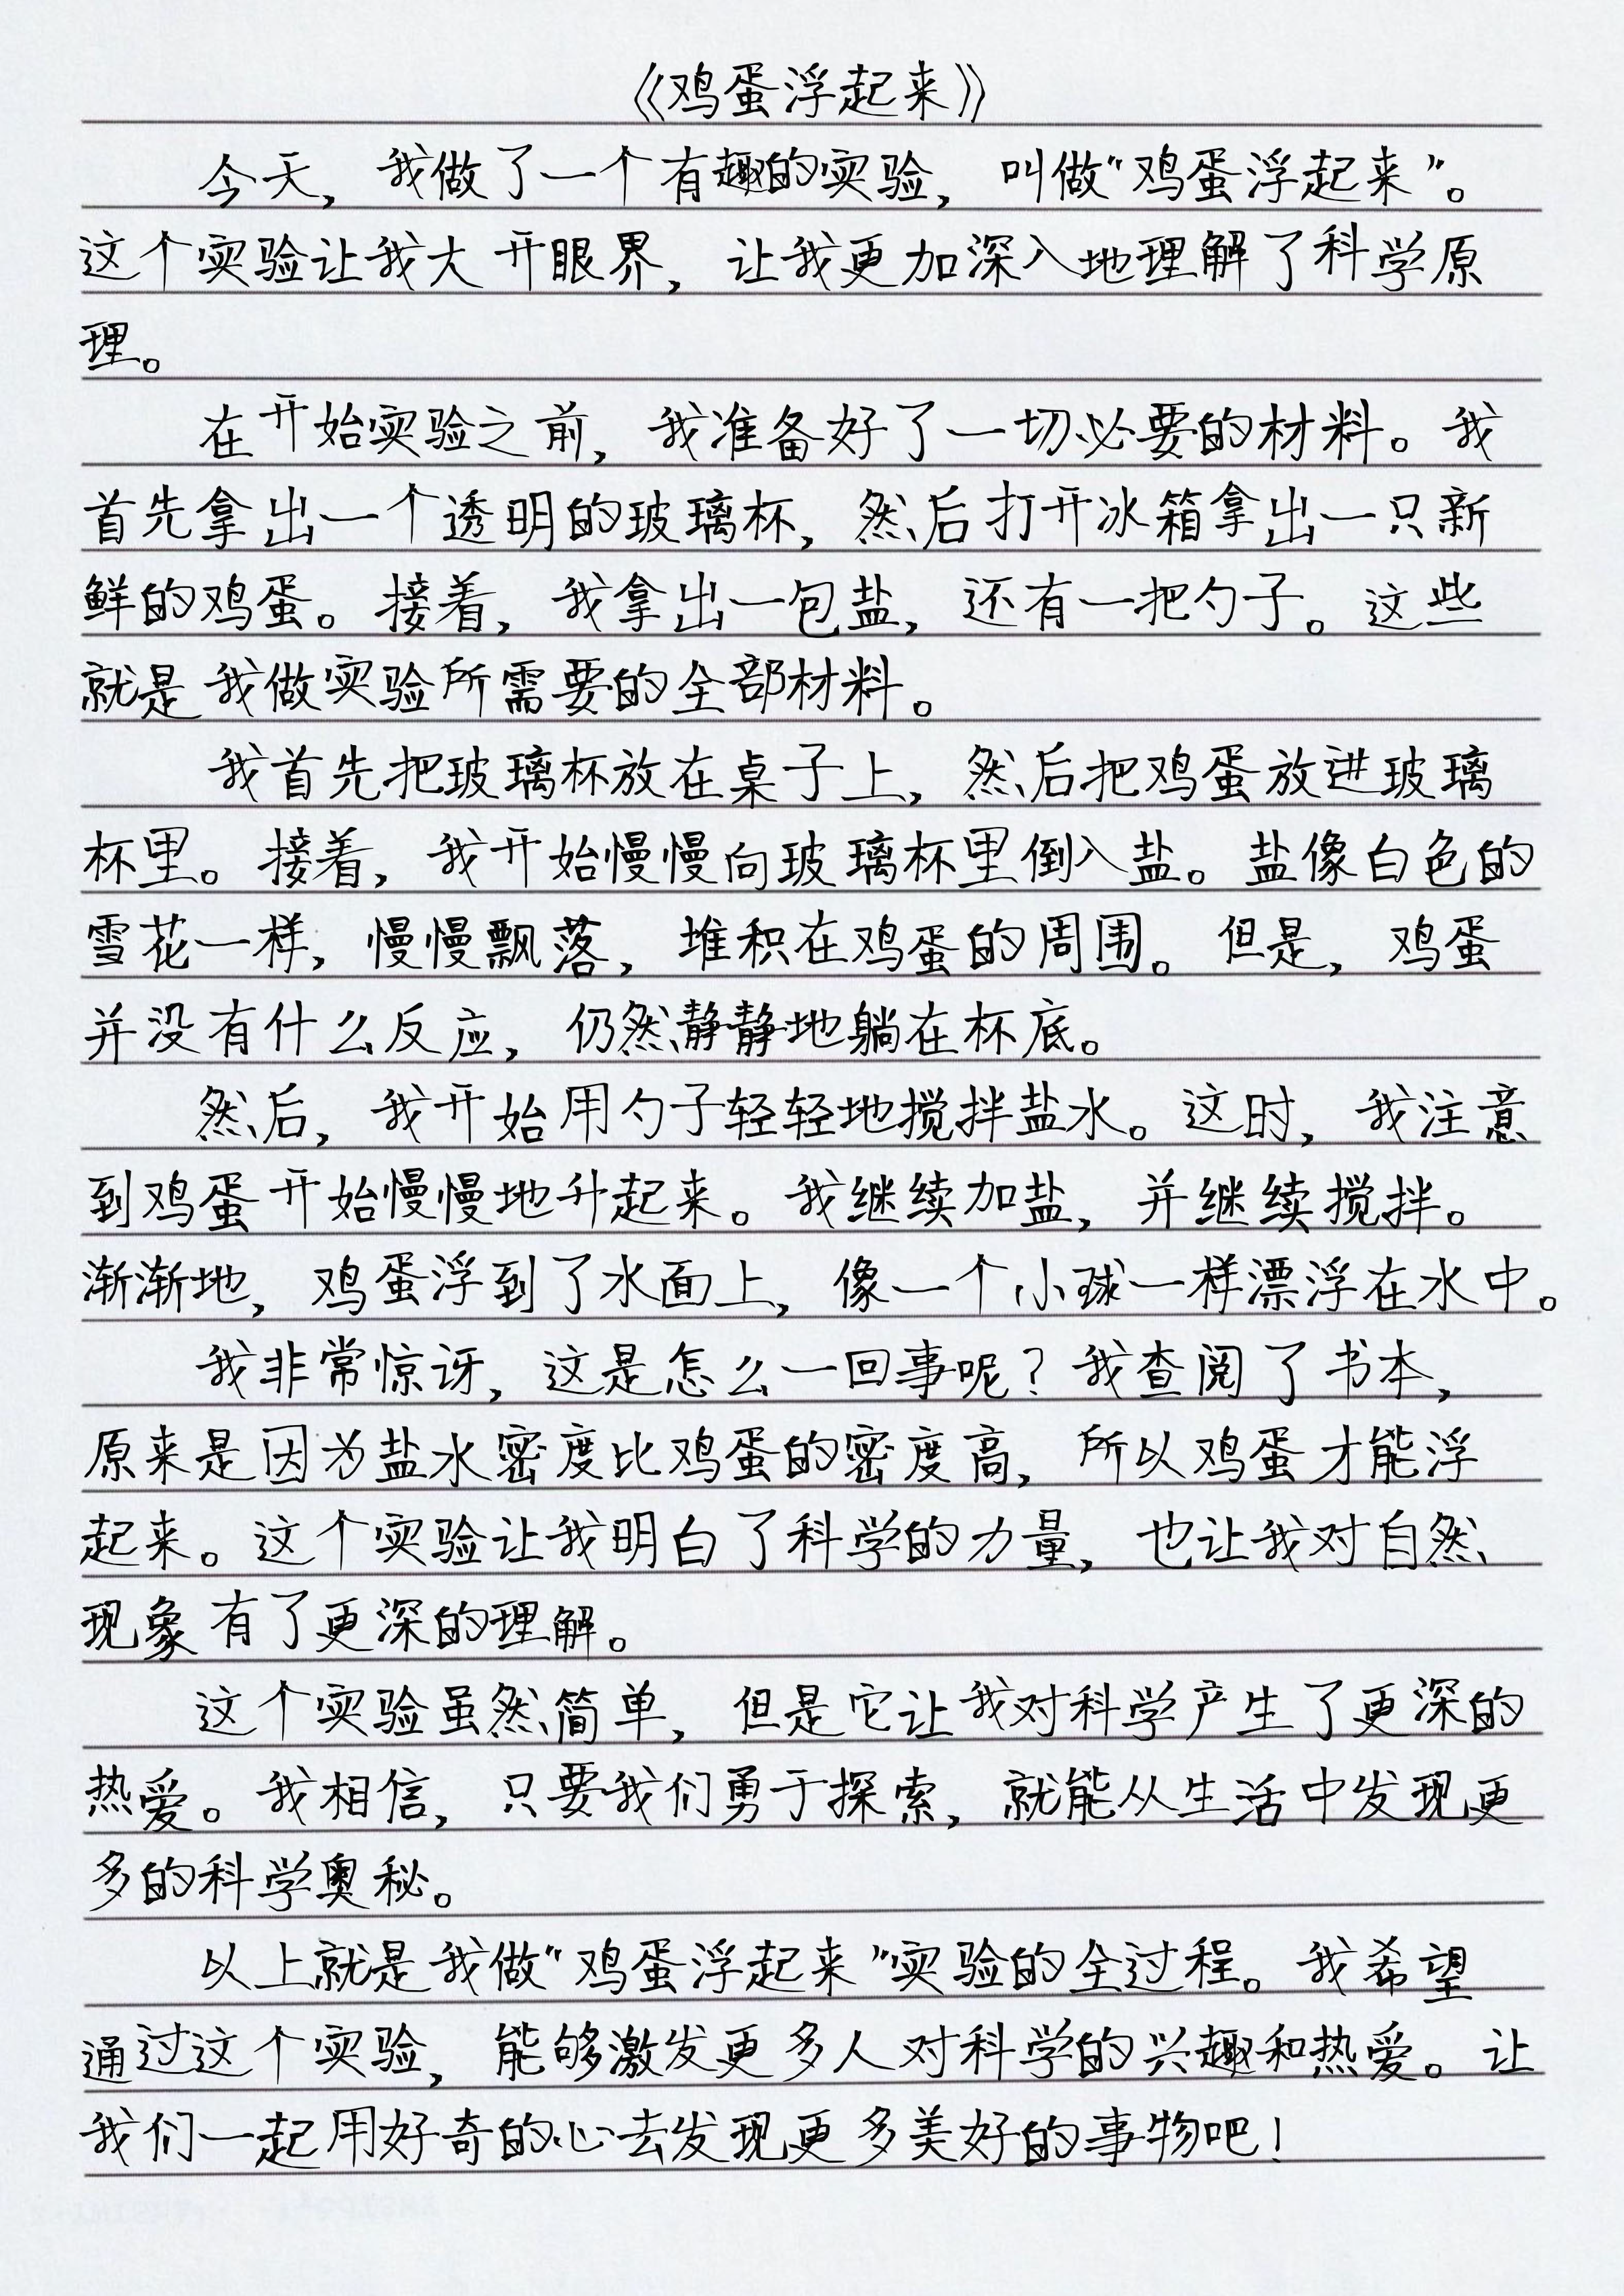 《鸡蛋浮起来》
今天，我做了一个有趣的实验，叫做“鸡蛋浮起来”。
这个实验让我大开眼界，让我更加深入地理解了科学原
理。
在开始实验之前，我准备好了一切必要的材料。我
首先拿出一个透明的玻璃杯，然后打开冰箱拿出一只新
鲜的鸡蛋。接着，我拿出一包盐，还有一把勺子。这些
就是我做实验所需要的全部材料。
我首先把玻璃杯放在桌子上，然后把鸡蛋放进玻璃
杯里。接着，我开始慢慢向玻璃杯里倒入盐。盐像白色的
雪花一样，慢慢飘落，堆积在鸡蛋的周围。但是，鸡蛋
并没有什么反应，仍然静静地躺在杯底。
然后，我开始用勺子轻轻地搅拌盐水。这时，我注意
到鸡蛋开始慢慢地升起来。我继续加盐，并继续搅拌。
渐渐地，鸡蛋浮到了水面上，像一个小球一样漂浮在水中。
我非常惊讶，这是怎么一回事呢？我查阅了书本，
原来是因为盐水密度比鸡蛋的密度高，所以鸡蛋才能浮
起来。这个实验让我明白了科学的力量，也让我对自然
现象有了更深的理解。
这个实验虽然简单，但是它让我对科学产生了更深的
热爱。我相信，只要我们勇于探索，就能从生活中发现更
多的科学奥秘。
以上就是我做“鸡蛋浮起来”实验的全过程。我希望
通过这个实验，能够激发更多人对科学的兴趣和热爱。让
我们一起用好奇的心去发现更多美好的事物吧！